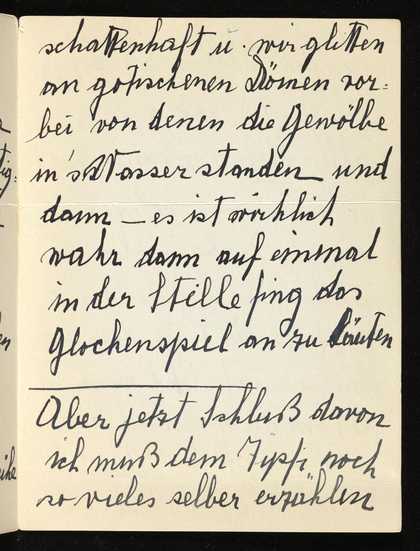 schattenhaft u. wir glitten
an gotischenen Dömen vor-
bei von denen die Gewölbe
in's Wasser standen und
dann – es ist wirklich
wahr dann auf einmal
in der Stille fing das
Glockenspiel an zu läuten
Aber jetzt Schluß davon
ich muß dem Tipsi noch
so vieles selber erzählen